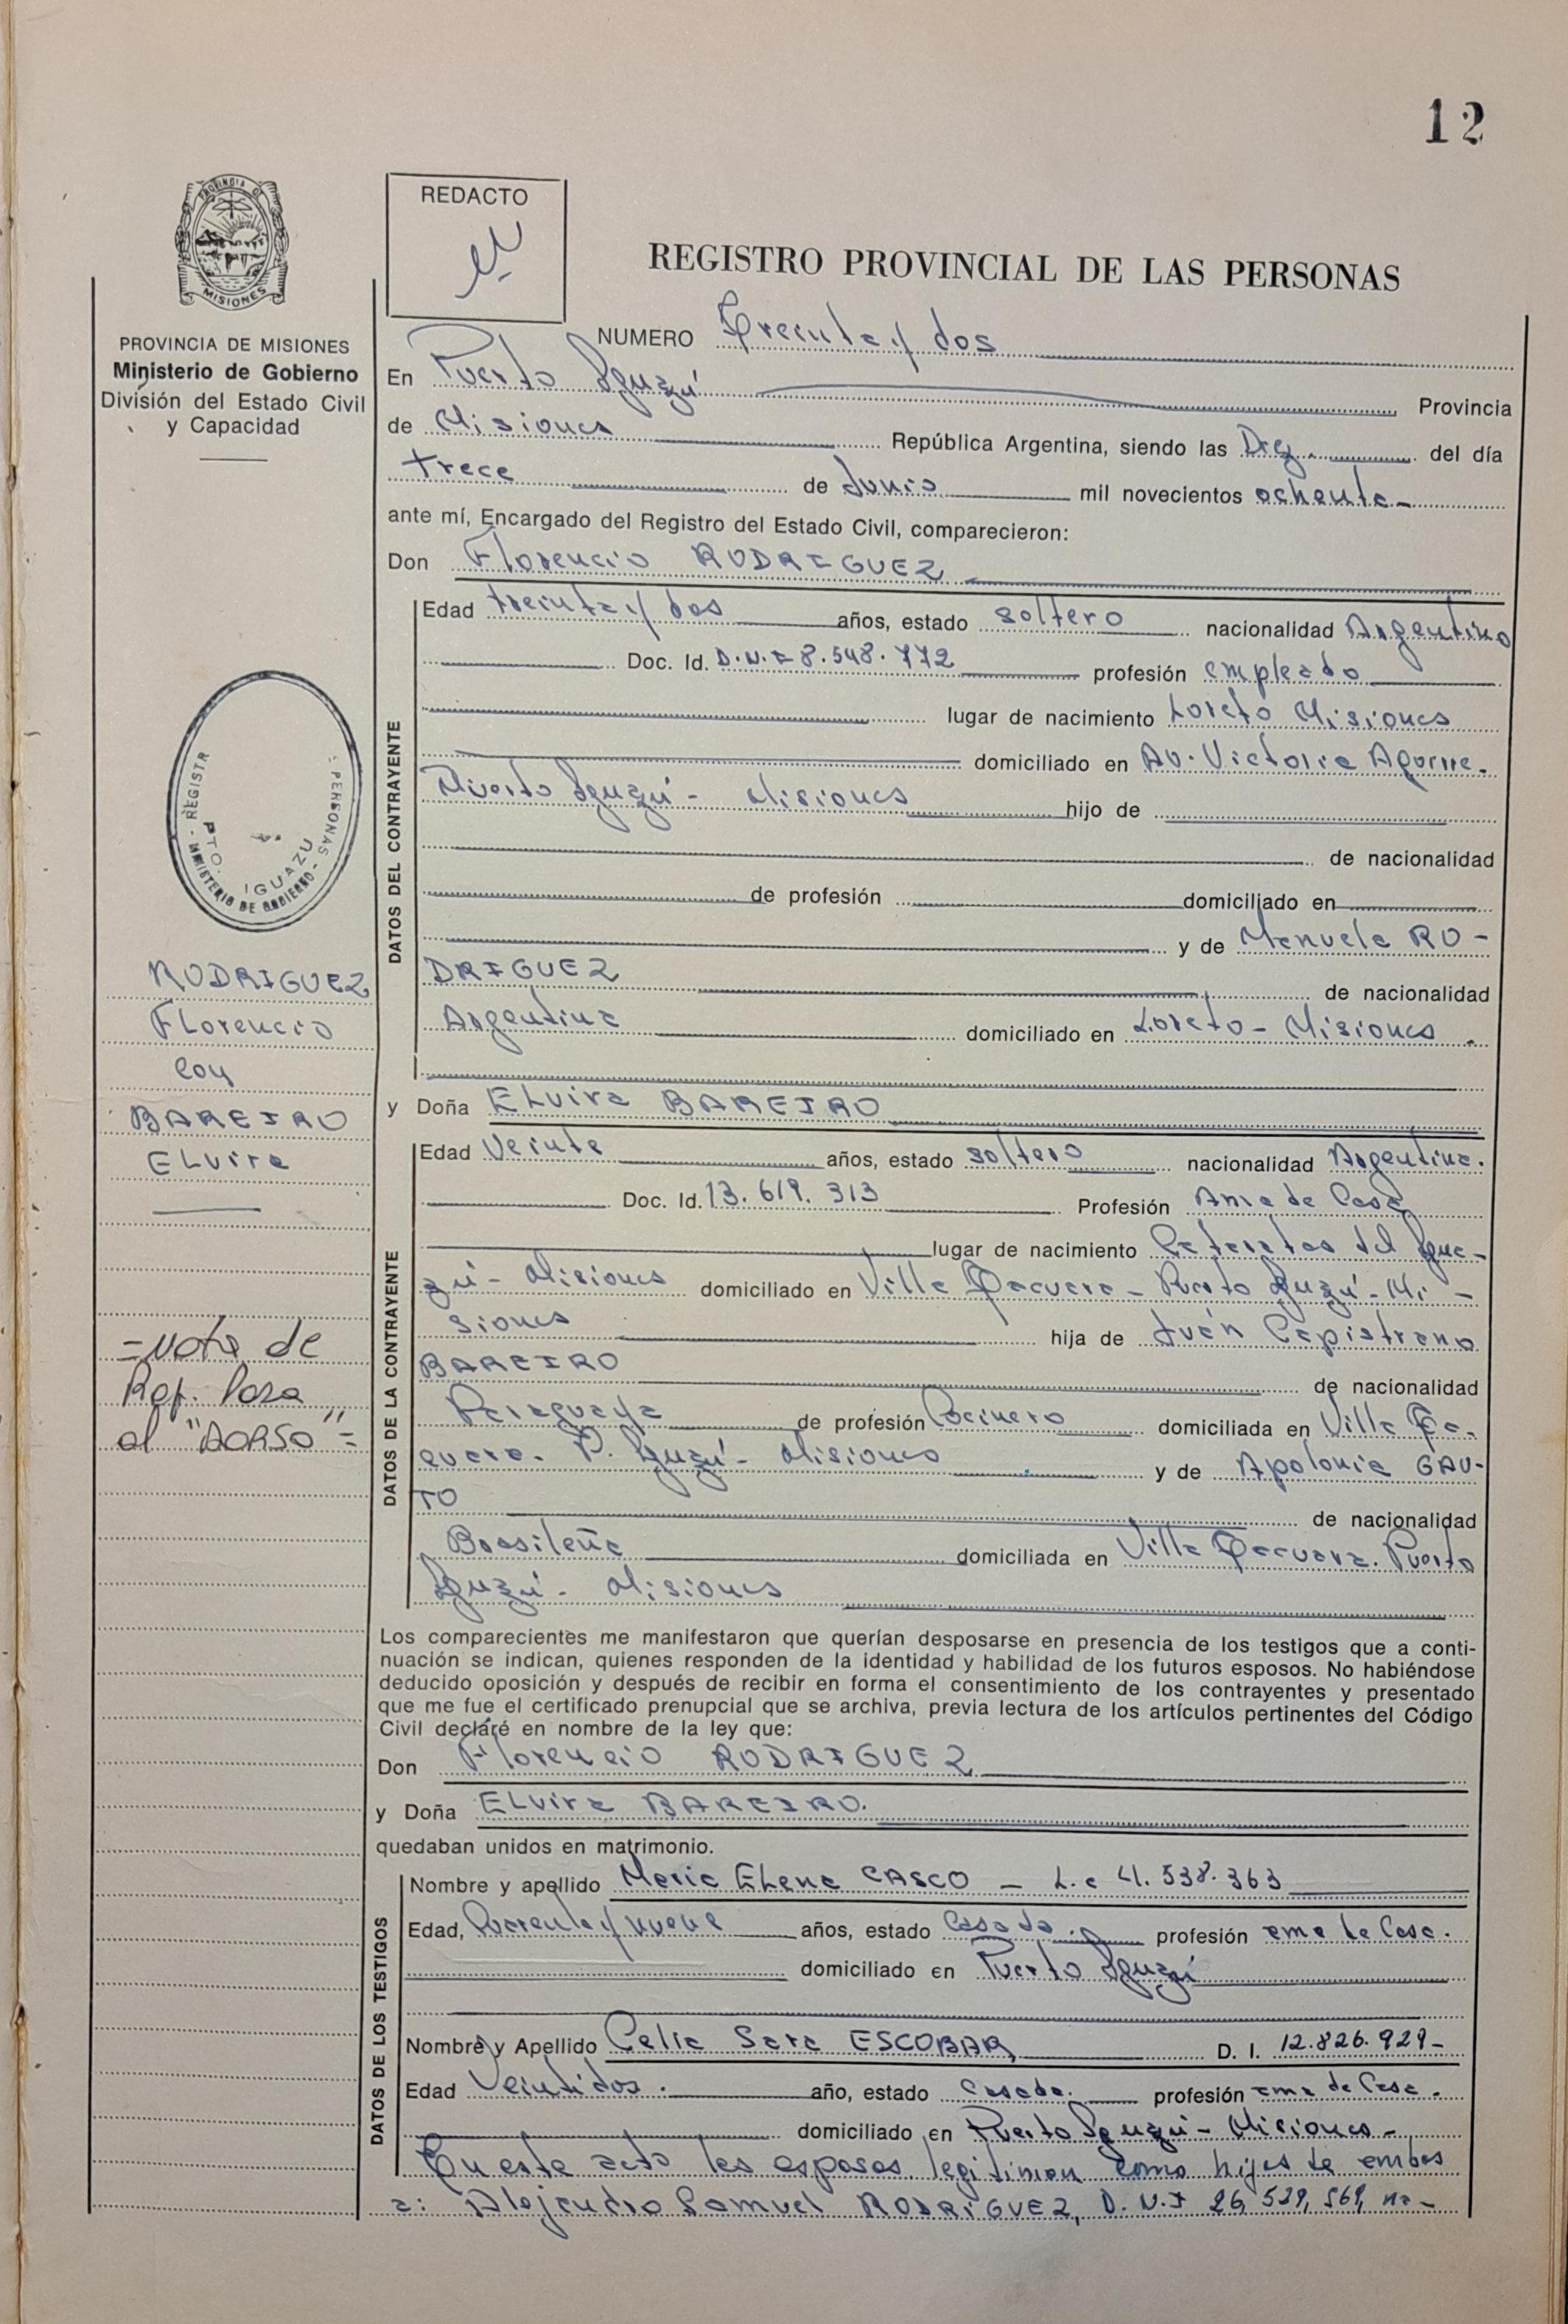 12
PROVINCIA DE
MISIONES
REDACTO
REGISTRO PROVINCIAL DE LAS PERSONAS
PROVINCIA DE MISIONES
Ministerio de Gobierno
División del Estado Civil
y Capacidad
NUMERO Treinta y dos
En Puerto Iguazú Provincia
de Misiones República Argentina, siendo las Diez del día
trece de Junio mil novecientos ochenta-
ante mí, Encargado del Registro del Estado Civil, comparecieron:
Don Florencio RODRIGUEZ
DATOS DEL CONTRAYENTE
Edad treinta y dos años, estado soltero nacionalidad Argentino
Doc. Id. D.N.I 8.548.772 profesión empleado
lugar de nacimiento Loreto Misiones
domiciliado en Av. Victoria Aguirre.
Puerto Iguazú - Misiones hijo de
de nacionalidad
de profesión domiciliado en
y de Manuela RO-
DRIGUEZ de nacionalidad
Argentina domiciliado en Loreto - Misiones.
MINISTERIO DE GOBIERNO - REGISTR PERSONAS
PTO. IGUAZU
RODRIGUEZ
Florencio
con
BAREIRO
ELvira
y Doña ELvira BAREIRO
DATOS DE LA CONTRAYENTE
Edad Veinte años, estado soltero nacionalidad Argentina.
Doc. Id. 13.619.313 Profesión Ama de Casa
lugar de nacimiento Cataratas del Igua-
zú - Misiones domiciliado en Villa Tacuara - Puerto Iguazú - Mi-
siones hija de Juan Capistrano
BAREIRO de nacionalidad
Paraguaya de profesión Cocinero domiciliado en Villa Ta-
cuara. P. Iguazú - Misiones y de Apolonia GAU-
TO de nacionalidad
Brasileña domiciliada en Villa Tacuara. Puerto
Iguazú - Misiones
= Nota de
Ref. Pasa
al "DORSO" =
Los comparecientes me manifestaron que querían desposarse en presencia de los testigos que a conti-
nuación se indican, quienes responden de la identidad y habilidad de los futuros esposos. No habiéndose
deducido oposición y después de recibir en forma el consentimiento de los contrayentes y presentado
que me fue el certificado prenupcial que se archiva, previa lectura de los artículos pertinentes del Código
Civil declaré en nombre de la ley que:
Don Florencio RODRIGUEZ
y Doña ELvira BAREIRO.
quedaban unidos en matrimonio.
DATOS DE LOS TESTIGOS
Nombre y apellido Maria ELena CASCO - L.c 4.538.363
Edad, Cuarenta y nueve años, estado Casada. profesión ama de Casa.
domiciliado en Puerto Iguazú
Nombre y Apellido Celia Sara ESCOBAR D. I. 12.826.929-
Edad Veintidos. año, estado Casada. profesión ama de Casa.
domiciliado en Puerto Iguazú - Misiones -
En este acto los esposos legitiman como hijos de ambos
a: Alejandro Samuel RODRIGUEZ, D.N.I 26,529,569, na-